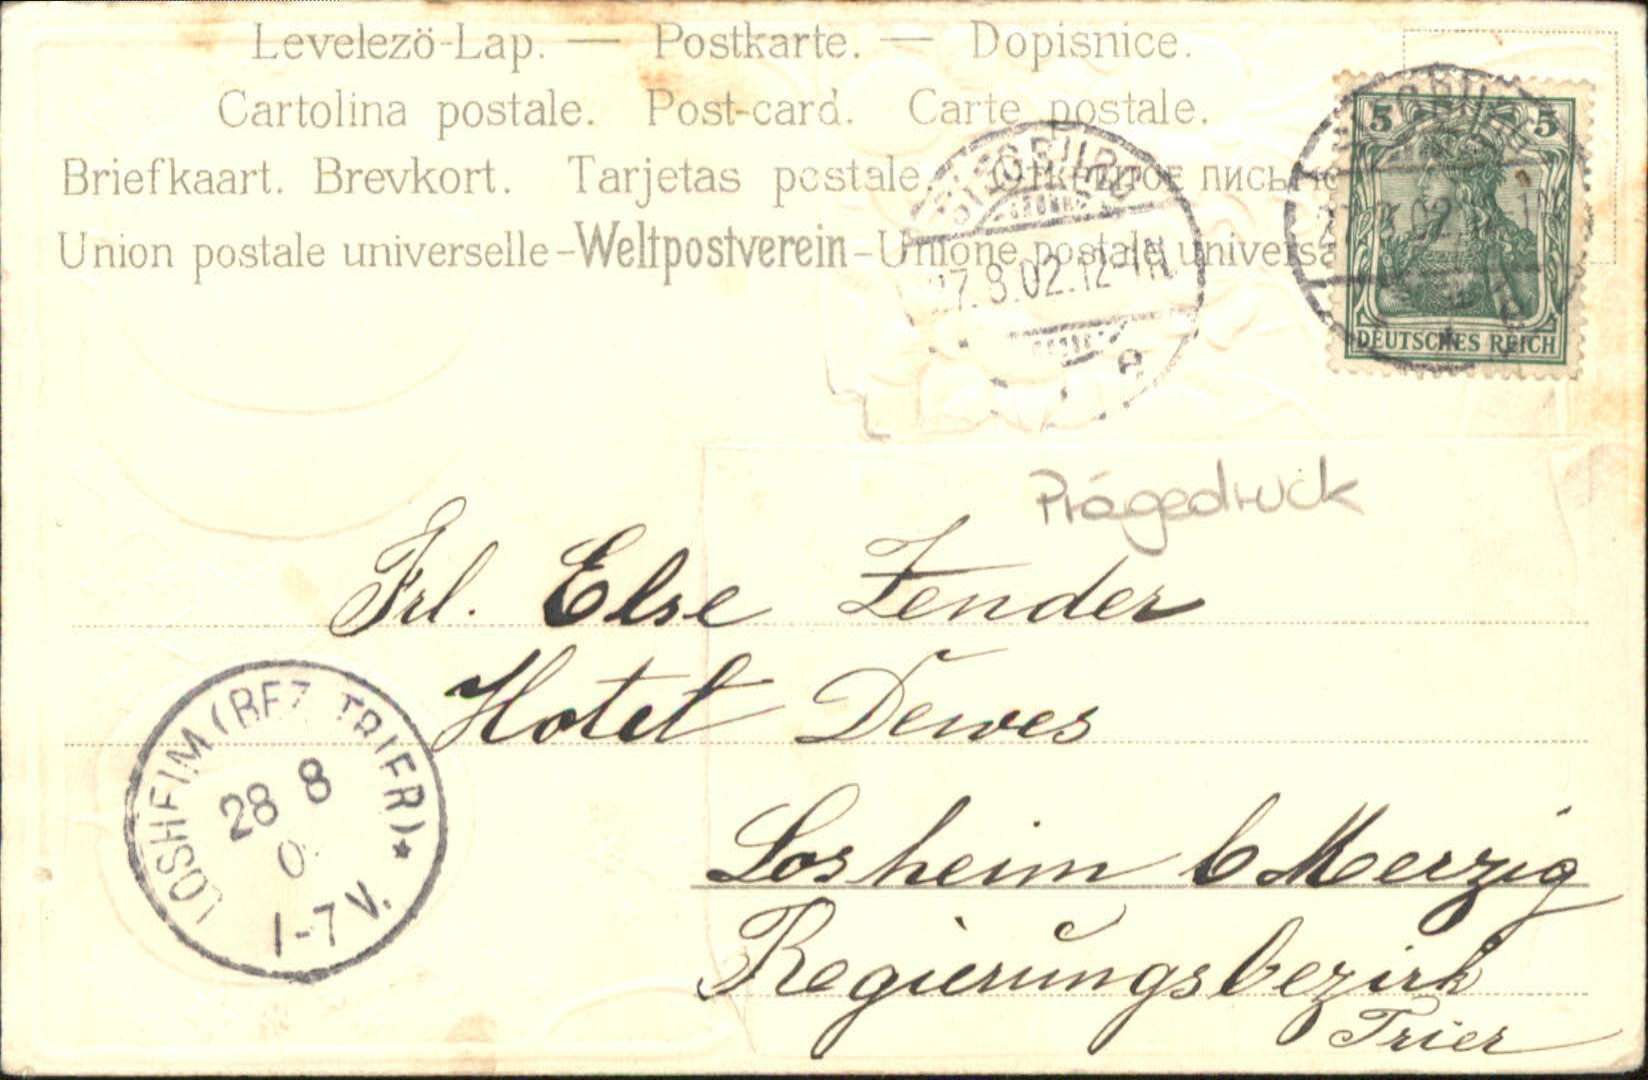 Levelezö-Lap. — Postkarte. — Dopisnice.
Cartolina postale. Post-card. Carte postale.
Briefkaart. Brevkort. Tarjetas postale.
Union postale universelle-Weltpostverein-Unione postale universa
SIEGBURG
27.8.02.12-1N
e
5 5
DEUTSCHES REICH
Prägedruck
Frl. Else Zender
Hotel Dewes
Losheim b Merzig
Regierungsbezirk
Trier
LOSHEIM (BEZ. TRIER) *
28 8
0
1-7 V.